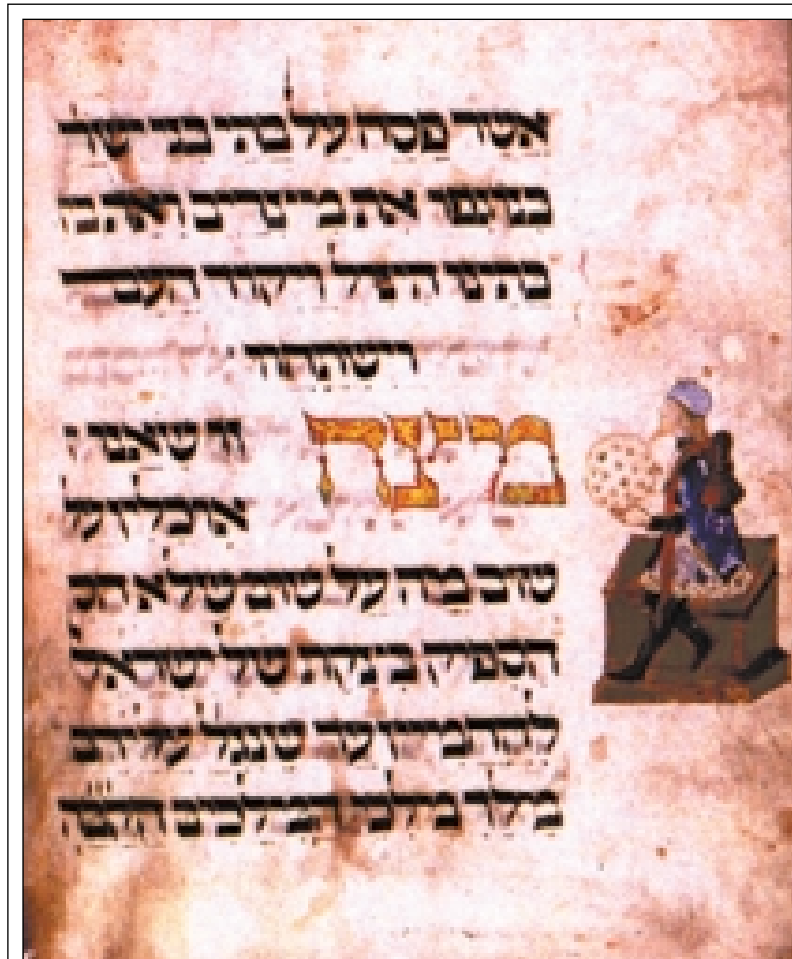 אשר פסח על בתי בני ישר
בנגפו את מצרים ואת
בתינו הציל ויקוד העם
וישתחוו
מצה זו שאנו
אוכלין על
שום מה על שום שלא
הספיק בצקת של ישראל
להחמיץ עד שנגל עליהם
מלך מלכי המלכים הקבה